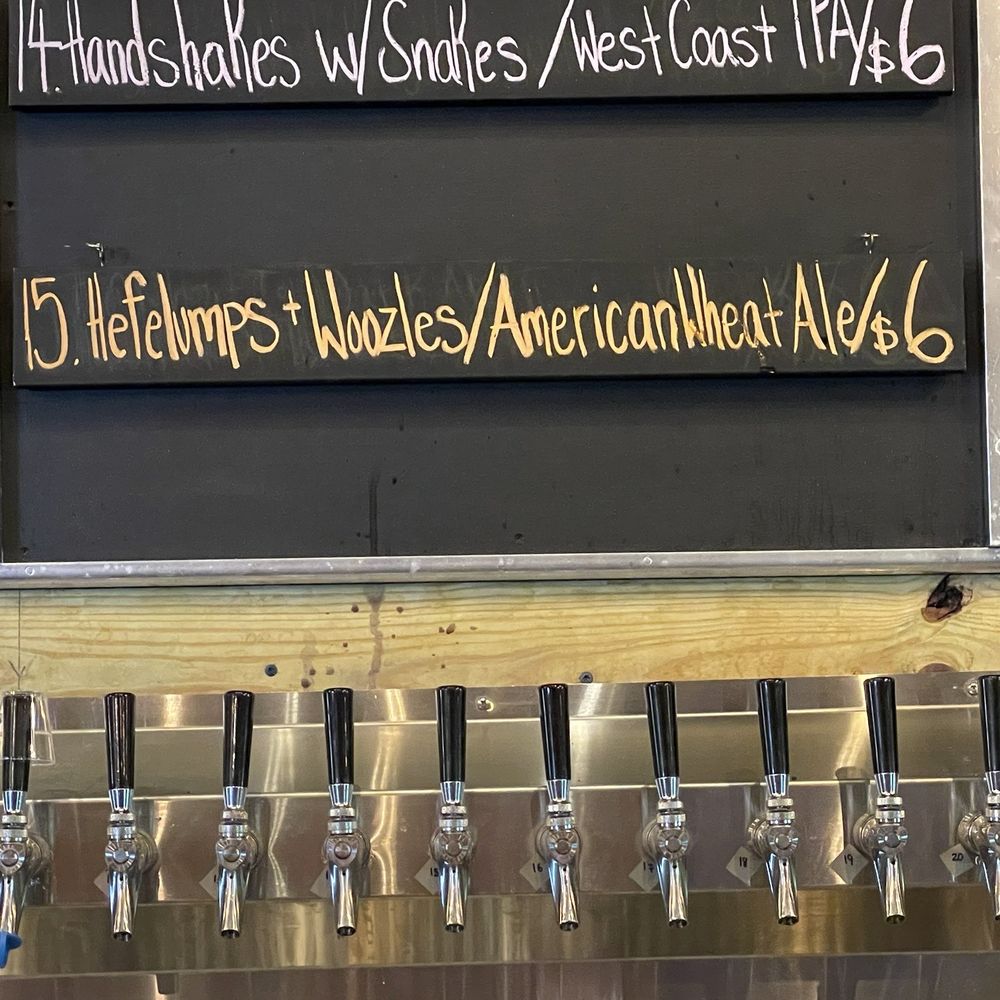 14. Handshakes w/ Snakes / West Coast IPA / $6
15. Hefelumps + Woozles / American Wheat Ale / $6
15
16
17
18
19
20